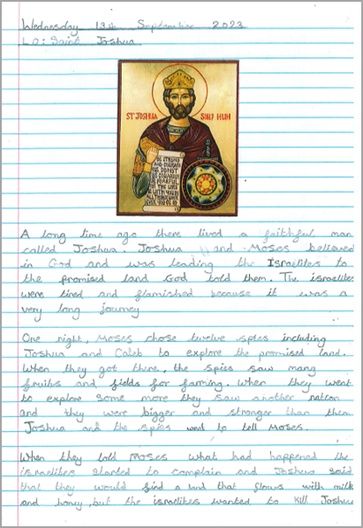 Wednesday 13th September 2023
LO: Saint Joshua
ST JOSHUA
SINJ HUH
BE STRONG
AND COURAGE
A long time ago there lived a faithful man
called Joshua. Joshua and Moses believed
in God and was leading the Israelites to
the promised land God told them. The israelites
were tired and flamished because it was a
very long journey
One night, Moses chose twelve spies including
Joshua and Caleb to explore the promised land.
When they got there, the spies saw many
fruits and fields for farming. When they went
to explore some more they saw another nation
and they were bigger and stronger than them
Joshua and the spies went to tell Moses.
When they told Moses what had happened the
israelites started to complain and Joshua said
that they would find a land that flows with milk
and honey but the israelites wanted to kill Joshua